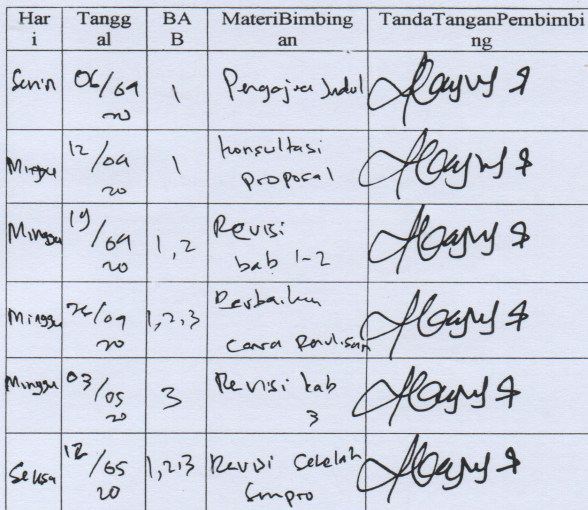 Har i Tangg al BA B MateriBimbing an TandaTanganPembimbi ng
Senin 06/04 20 1 Pengajuan Judul
Minggu 12/04 20 1 konsultasi proposal
Minggu 19/04 20 1,2 Revisi bab 1-2
Minggu 26/04 20 1,2,3 Perbaikan Cara Penulisan
Minggu 03/05 20 3 Revisi bab 3
Selasa 12/05 20 1,2,3 Revisi Setelah Sempro